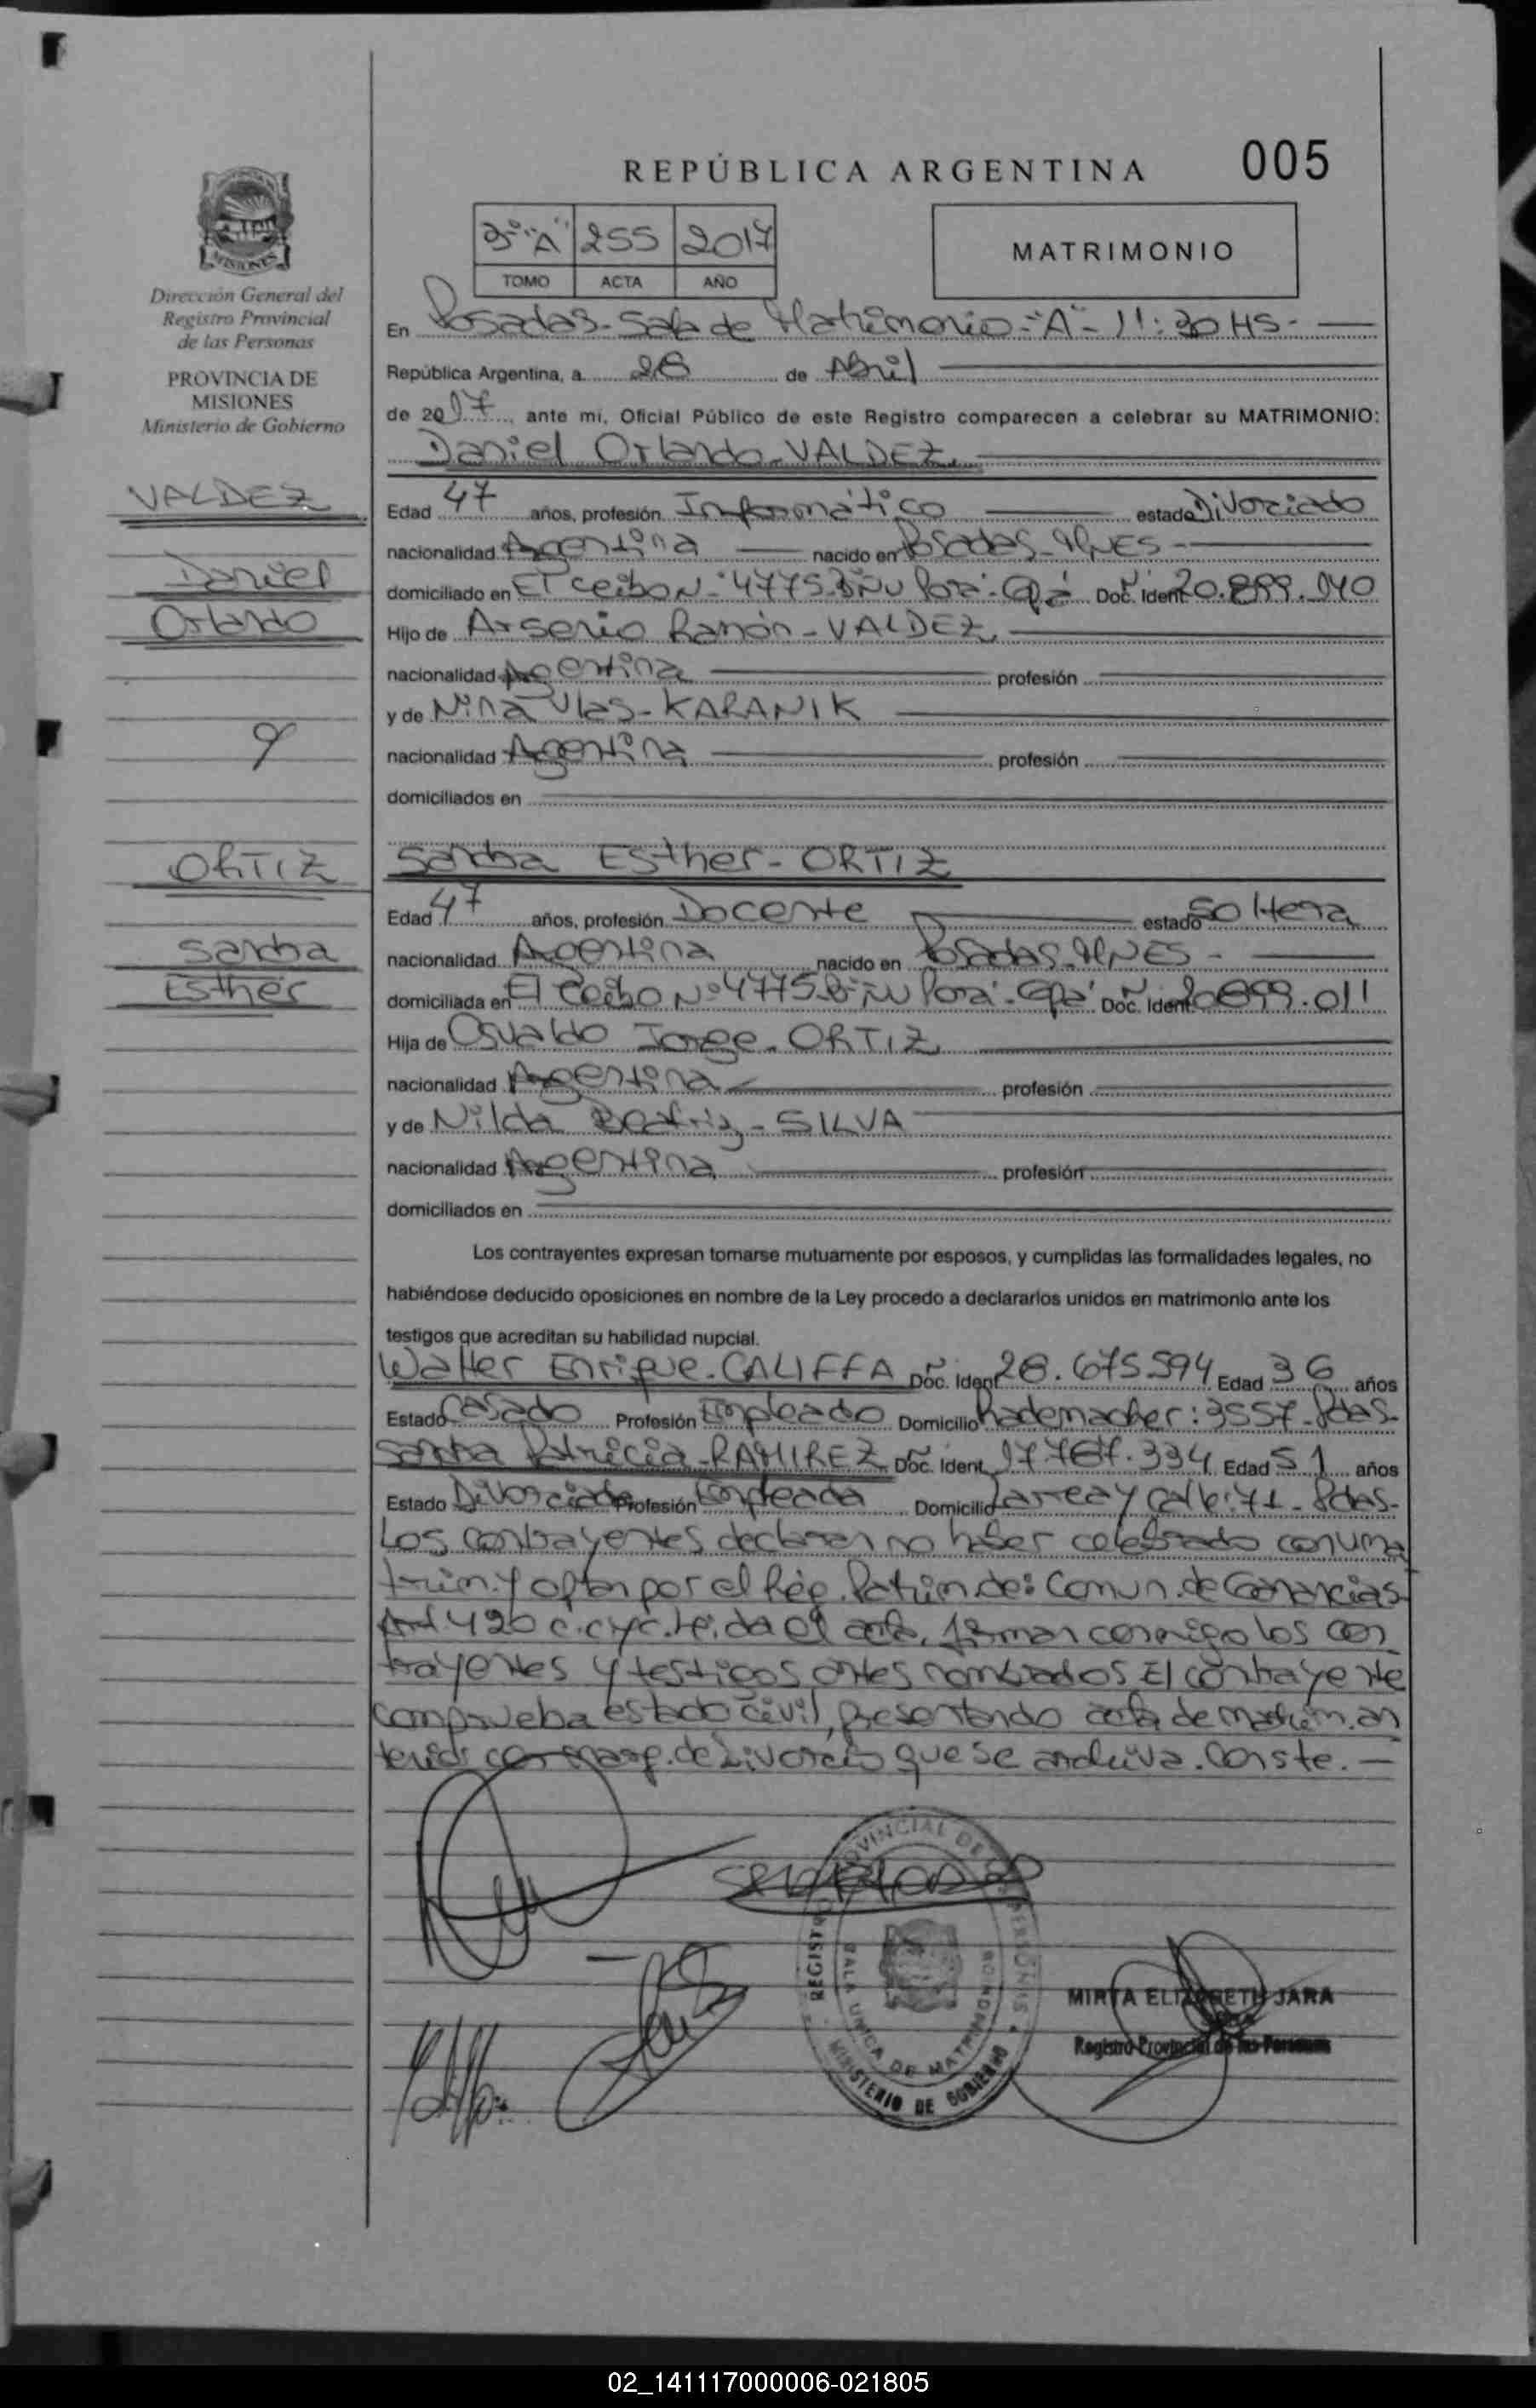 REPÚBLICA ARGENTINA 005
3º "A" 255 2017
TOMO ACTA AÑO
MATRIMONIO
Dirección General del
Registro Provincial
de las Personas
PROVINCIA DE
MISIONES
Ministerio de Gobierno
VALDEZ
Daniel
Orlando
y
ORTIZ
Sandra
Esther
En Posadas- Sala de Matrimonio-"A"- 11:30 HS-
República Argentina, a 28 de Abril
de 2017, ante mí, Oficial Público de este Registro comparecen a celebrar su MATRIMONIO:
Daniel Orlando-VALDEZ
Edad 47 años, profesión Informático estado Divorciado
nacionalidad Argentina nacido en Posadas-MNES-
domiciliado en El Ceibo Nº 4775 Bº Ñu Porá-Gpá Doc. Ident 20.899.040
Hijo de Arsenio Ramón-VALDEZ
nacionalidad Argentina profesión
y de Nina Vlas-KARANIK
nacionalidad Argentina profesión
domiciliados en
Sandra Esther-ORTIZ
Edad 47 años, profesión Docente estado Soltera
nacionalidad Argentina nacido en Posadas-MNES-
domiciliada en El Ceibo Nº 4775 Bº Ñu Porá-Gpá Doc. Ident 20899.011
Hija de Osvaldo Jorge-ORTIZ
nacionalidad Argentina profesión
y de Nilda Beatriz-SILVA
nacionalidad Argentina profesión
domiciliados en
Los contrayentes expresan tomarse mutuamente por esposos, y cumplidas las formalidades legales, no
habiéndose deducido oposiciones en nombre de la Ley procedo a declararlos unidos en matrimonio ante los
testigos que acreditan su habilidad nupcial.
Walter Enrique-CALIFFA Doc. Ident 28.675.594 Edad 36 años
Estado Casado Profesión Empleado Domicilio Rademacher:3557-Pdas-
Sandra Patricia-RAMIREZ Doc. Ident 17.767.334 Edad 51 años
Estado Divorciada Profesión Empleada Domicilio Larrea y calle:71-Pdas-
Los contrayentes declaran no haber celebrado conv.ma
trim.y optan por el Rég.Patrim.de:Comun.de Ganancias
Art 420 c.cyc.leída el acta, firman conmigo los con
trayentes y testigos antes nombrados El contrayente
comprueba estado civil, presentando acta de matrim.an
terior con marg.de Divorcio que se archiva.Conste.-
REGISTRO PROVINCIAL DE LAS PERSONAS
SALA UNICA DE MATRIMONIOS
MINISTERIO DE GOBIERNO
MIRTA ELIZABETH JARA
Registro Provincial de las Personas
02_141117000006-021805